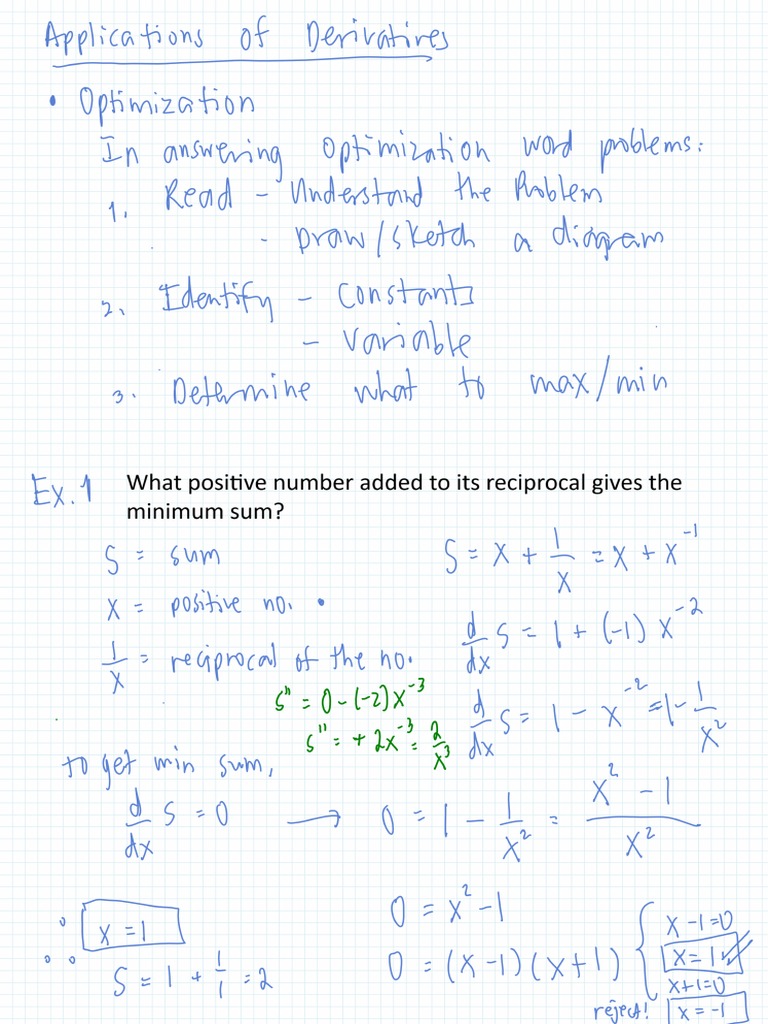 Applications of Derivatives
• Optimization
In answering optimization word problems:
1. Read - Understand the Problem
- Draw/sketch a diagram
2. Identify - Constants
- Variable
3. Determine what to max/min
Ex. 1 What positive number added to its reciprocal gives the
minimum sum?
S = sum
x = positive no. •
1/x = reciprocal of the no.
S = x + 1/x = x + x^-1
d/dx S = 1 + (-1) x^-2
d/dx S = 1 - x^-2 = 1 - 1/x^2
S" = 0 - (-2)x^-3
S" = + 2x^-3 = 2/x^3
to get min sum,
d/dx S = 0 → 0 = 1 - 1/x^2 = (x^2 - 1)/x^2
0 = x^2 - 1
0 = (x-1)(x+1) { x-1=0
x=1 ✓
x+1=0
reject! x = -1
∴ x = 1
S = 1 + 1/1 = 2